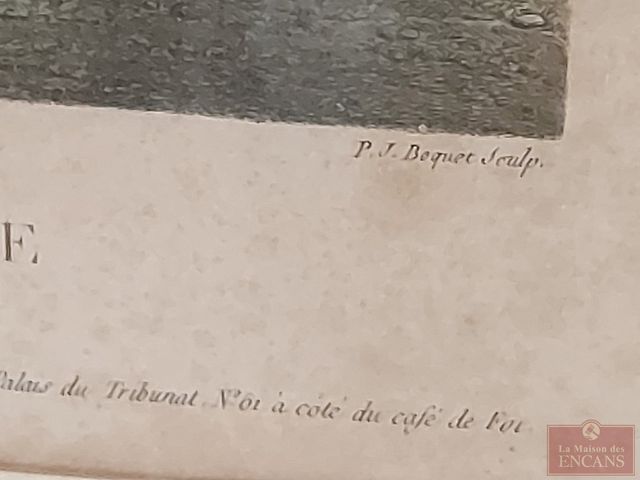 P. J. Bequet Sculp.
E
Palais du Tribunat N° 61 à côté du café de Foi
La Maison des
ENCANS